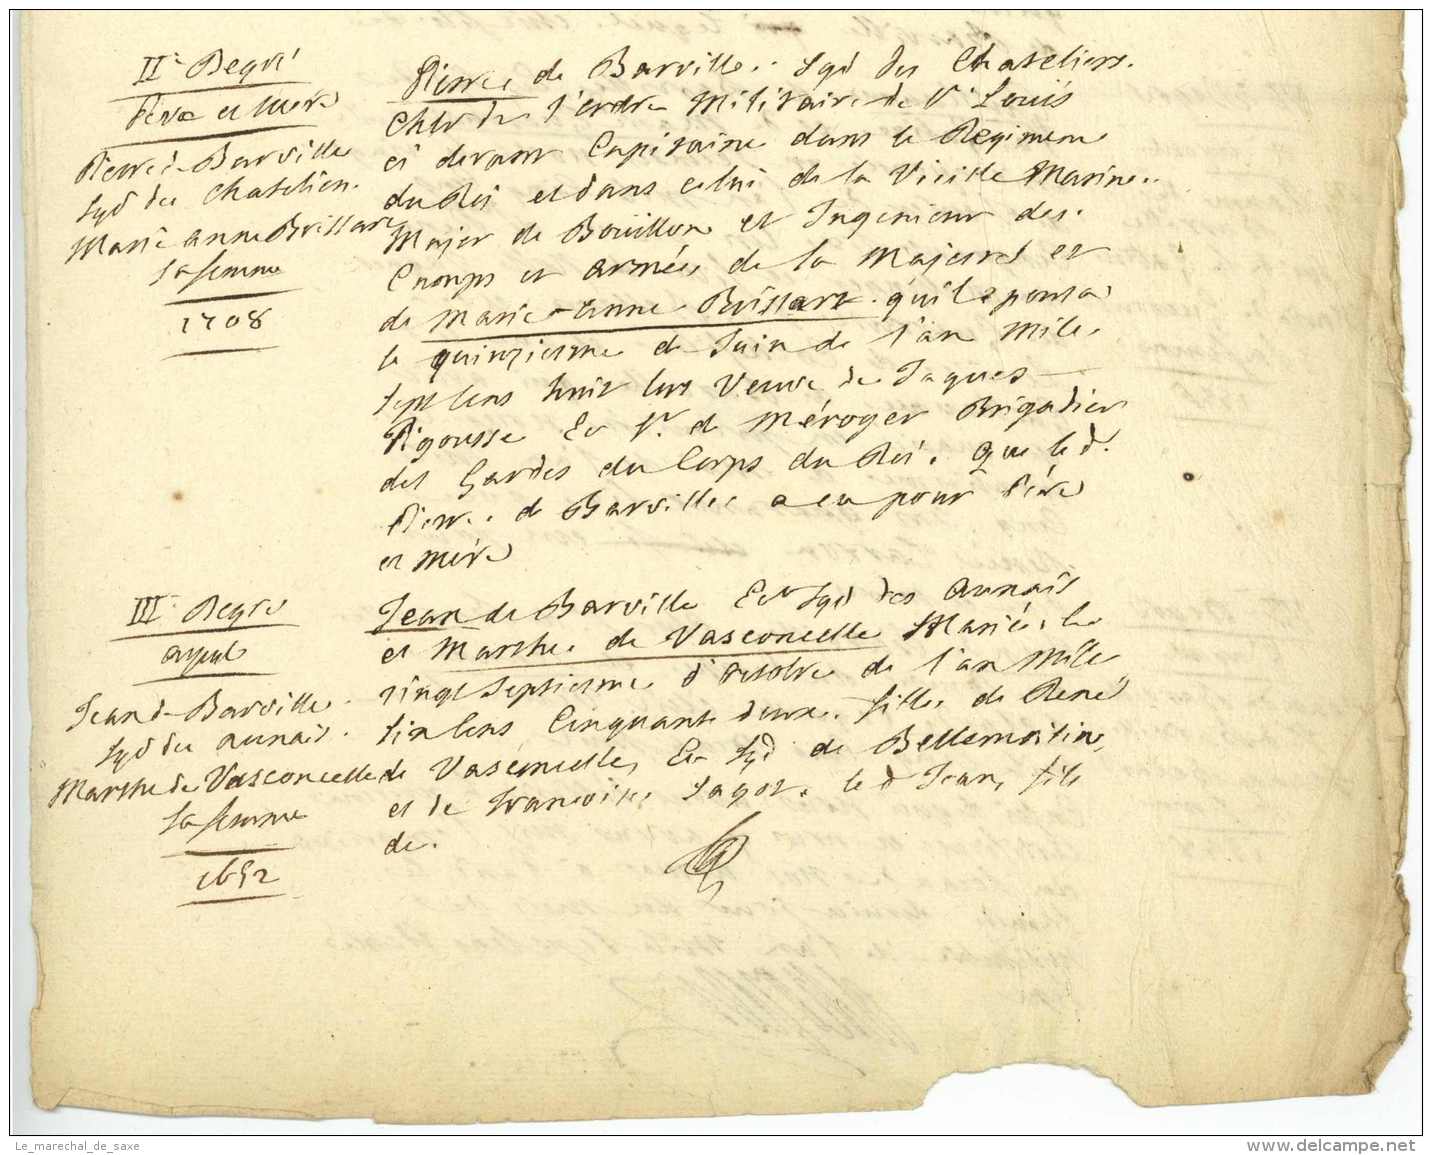 II.e Degré
Pere et mere
Pierre de Barville
Sgr des Chateliers.
Marie anne Brissart
sa femme
1708
Pierre de Barville. Sgr des Chateliers.
Chlr de l'ordre Militaire de St. Louis
ci devant Capitaine dans le Regiment
du Roi et dans celui de la Vieille Marine.
Major de Bouillon et Ingenieur des.
Camps et armées de sa Majesté et
de Marie-anne Brissart. qu'il épousa
le quinziesme de Juin de l'an Mile
sept cens huit lors Veuve de Jaques
Pigousse Ec Sr. de Méroger Brigadier
des Gardes du Corps du Roi. Que le d.
Pierre de Barville a eu pour Père
et mère
III.e Degré
ayeul
Jean de Barville.
Sgr des aunais.
Marthe de Vasconcelle
sa femme
1652
Jean de Barville Ecr Sgr des Aunais
et Marthe de Vasconcelle Mariés le
vingt Septiesme d'Octobre de l'an Mile
six Cens Cinquante deux. fille de René
de Vasconcelle, Ec Sgr de Bellemaitin,
et de Francoise Sagot. le d Jean, fils
de.
Le_marechal_de_saxe
delcampe.net